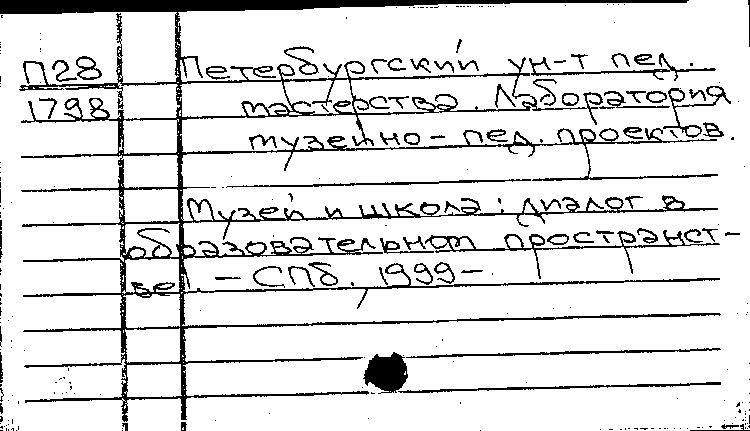 П28 Петербургский ун-т пед.
1798 мастерства. Лаборатория
музейно-пед. проектов.
Музей и школа: диалог в
образовательном пространст-
ве. – СПб., 1999–